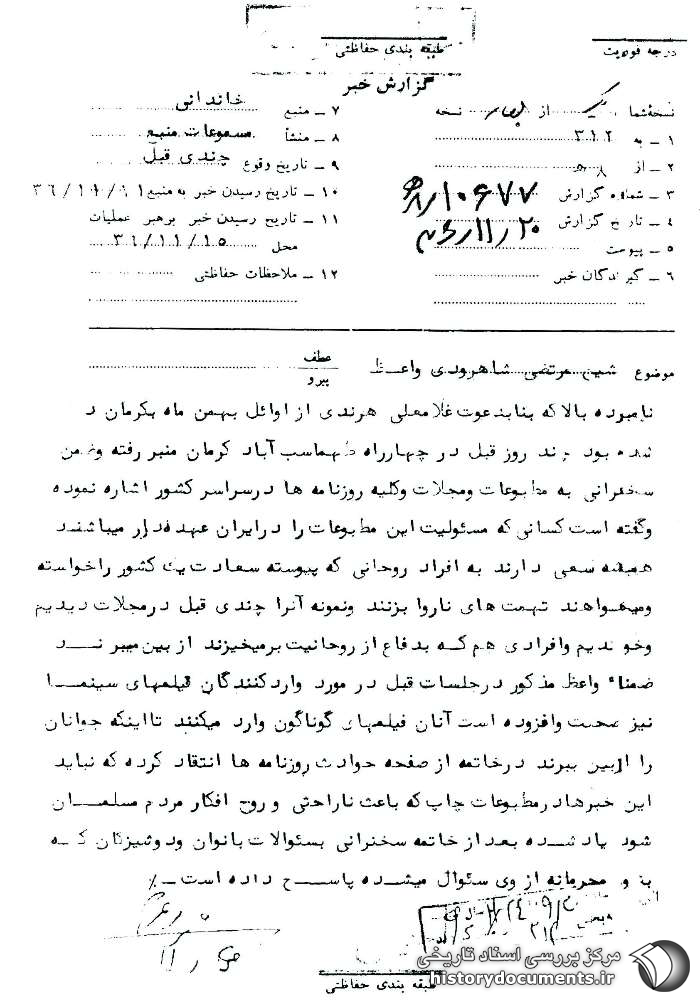 طبقه بندی حفاظتی
درجه فوریت
گزارش خبر
نسخه شما یک از چهار نسخه
۱ – به ۳۱۲
۲ – از
۳ – شماره گزارش ۱۰۶۷۷/ه۸
۴ – تاریخ گزارش ۲۰/۱۱/۳۶
۵ – پیوست
۶ – گیرندگان خبر
۷ – منبع خاندانی
۸ – منشأ مسموعات منبع
۹ – تاریخ وقوع چندی قبل
۱۰ – تاریخ رسیدن خبر به منبع
۱۱ – تاریخ رسیدن خبر برهبر عملیات
محل
۱۲ – ملاحظات حفاظتی
موضوع شیخ مرتضی شاهرودی واعظ
عطف
پیرو
نامبرده بالا که بنابدعوت غلامعلی هرندی از اوائل بهمن ماه بکرمان د
شده بود چند روز قبل در چهارراه طهماسب آباد کرمان منبر رفته وضمن
سخنرانی به مطبوعات ومجلات وکلیه روزنامه ها درسراسر کشور اشاره نموده
وگفته است کسانی که مسئولیت این مطبوعات را درایران عهده دار میباشند
همیشه سعی دارند به افراد روحانی که پیوسته سعادت یک کشور راخواسته
ومیخواهند تهمت های ناروا بزنند ونمونه آنرا چندی قبل درمجلات دیدیم
وخوندیم وافرادی هم که بدفاع از روحانیت برمیخیزند از بین میبرند
ضمناً واعظ مذکور درجلسات قبل در مورد واردکنندگان فیلمهای سینما
نیز صحبت وافزوده است آنان فیلمهای گوناگون وارد میکنند تا اینکه جوانان
را ازبین ببرند درخاتمه از صفحه حوادث روزنامه ها انتقاد کرده که نباید
این خبرهادرمطبوعات چاپ که باعث ناراحتی و روح افکار مردم مسلمان
شود یاد شده بعد از خاتمه سخنرانی بسئوالات بانوان ودوشیزگان که
بنحو محرمانه از وی سئوال میشده پاسخ داده است ./
طبقه بندی حفاظتی
مرکز بررسی اسناد تاریخی
historydocuments.ir